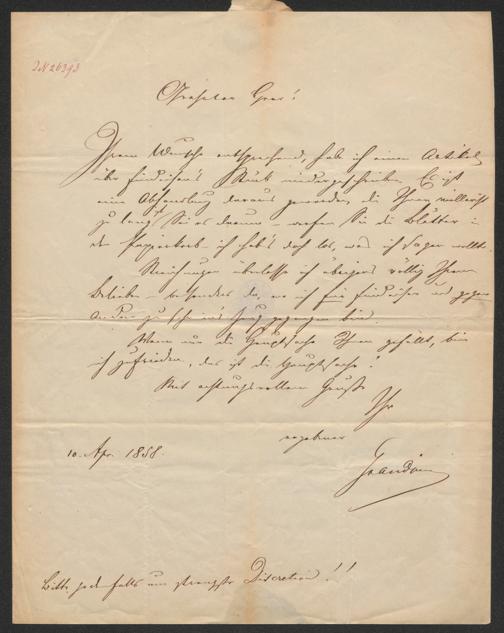 IN 26393
Geehrter Herr!
Ihrem Wunsche entsprechend, habe ich einen Artikel
über Findeisen's Buch niedergeschrieben. Es ist
eine Abhandlung daraus geworden, die Ihnen vielleicht
zu lang ist. Sei es darum – werfen Sie die Blätter in
den Papierkorb, ich hab's doch los, was ich sagen wollte.
Streichungen überlasse ich übrigens völlig Ihrem
Belieben – besonders da, wo ich für und gegen
bin.
Wenn nur die Hauptsache Ihnen gefällt, bin
ich zufrieden, das ist die Hauptsache!
Mit achtungsvollem Gruße
Ihr
ergebener
10. Apr. 1858.
Bitte jedenfalls um strengste Discretion!!